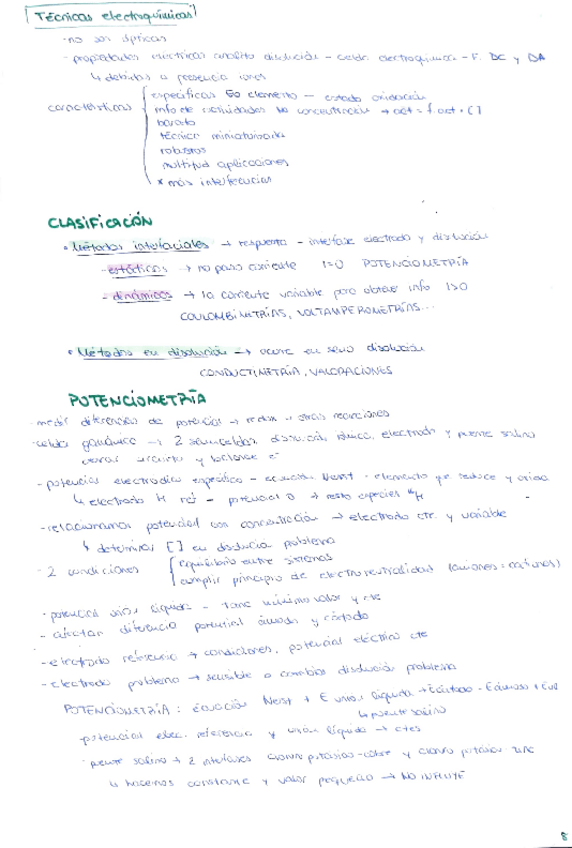 Técnicas electroquímicas
- no son ópticas
- propiedades eléctricas analito disolución - celda electroquímica - F. DC y DA
↳ debidas a presencia iones
características
específicas Eo elemento - estado oxidación
info de actividades no concentración → act = f.act · [ ]
barato
técnica miniaturizada
robustas
multitud aplicaciones
* más interferencias
CLASIFICACIÓN
• Métodos interfaciales → respuesta - interfase electrodo y disolución
- estáticos → no paso corriente I=0 POTENCIOMETRÍA
- dinámicos → la corriente variable para obtener info I>0
COULOMBIMETRÍAS, VOLTAMPEROMETRÍAS...
• Métodos en disolución → ocurre en seno disolución
CONDUCTIMETRÍA, VALORACIONES
POTENCIOMETRÍA
- medir diferencias de potencial → redox u otras reacciones
- celda galvánica → 2 semiceldas, disolución iónica, electrodo y puente salino
cerrar circuito y balance e⁻
- potencial electrodo específico - ecuación Nernst · elemento que reduce y oxida
↳ electrodo H ref - potencial 0 → resto especies
- relacionamos potencial con concentración → electrodo cte. y variable
↳ determinar [ ] en disolución problema
- 2 condiciones
equilibrio entre sistemas
cumplir principio de electroneutralidad (aniones = cationes)
- potencial unión líquida - tome mínimo valor y cte
- afectan diferencia potencial ánodo y cátodo
- electrodo referencia → condiciones, potencial eléctrico cte
- electrodo problema → sensible a cambios disolución problema
POTENCIOMETRÍA: Ecuación Nernst + E unión líquida → Ecátodo - Eánodo + Eul
↳ puente salino
potencial elec. referencia y unión líquida → ctes
- puente salino → 2 interfases cloruro potasio-cobre y cloruro potasio-zinc
↳ hacemos constante y valor pequeño → NO INFLUYE
8